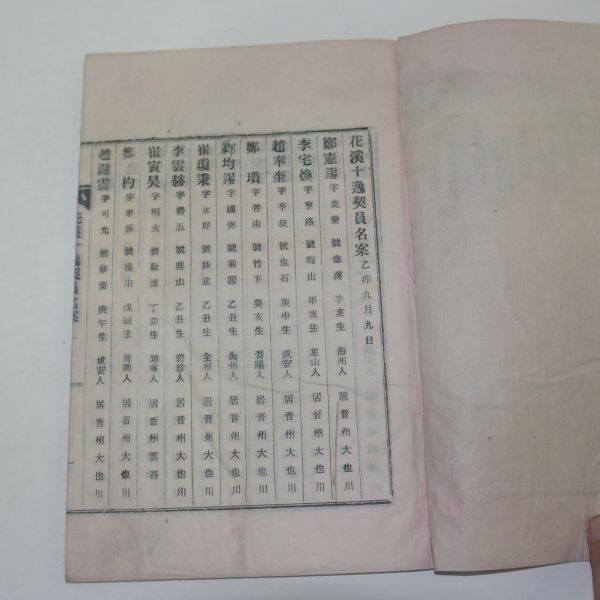 花溪十逸契員名案 乙卯九月九日
鄭憲錫 字克兼 號也溪 辛亥生 海州人 居晋州大也川
李宅煥 字亨洛 號晦山 甲寅生 星山人 居晋州大也川
趙奉奎 字亨叔 號也石 庚申生 咸安人 居晋州大也川
鄭 瓚 字善由 號竹下 癸亥生 晋陽人 居晋州大也川
鄭均錫 字國弼 號菊圃 乙丑生 海州人 居晋州大也川
崔瓊秉 字永好 號修堂 乙丑生 全州人 居晋州大也川
李雲赫 字善五 號 山 乙丑生 碧珍人 居晋州大也川
崔寅昊 字明夫 號耿齋 丁卯生 朔寧人 居晋州雲谷
鄭 杓 字 號楊山 戊辰生 晋陽人 居晋州大也川
趙鏞震 字可允 號修齋 庚午生 咸安人 居晋州大也川
花溪十逸契員名案